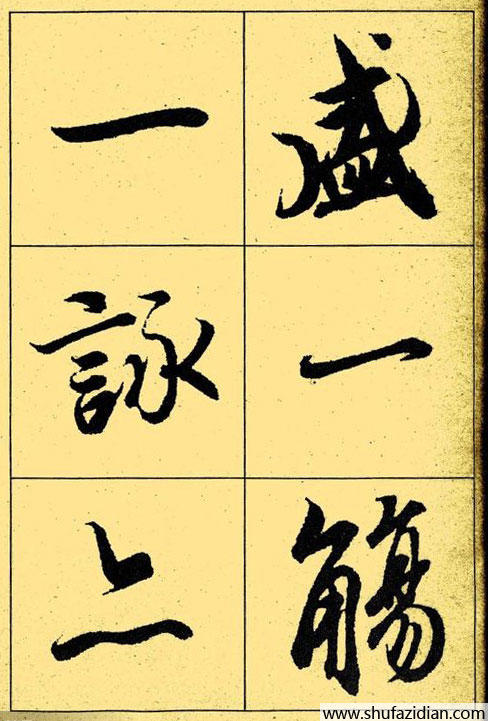 盛一觴
一詠亦
www.shufazidian.com